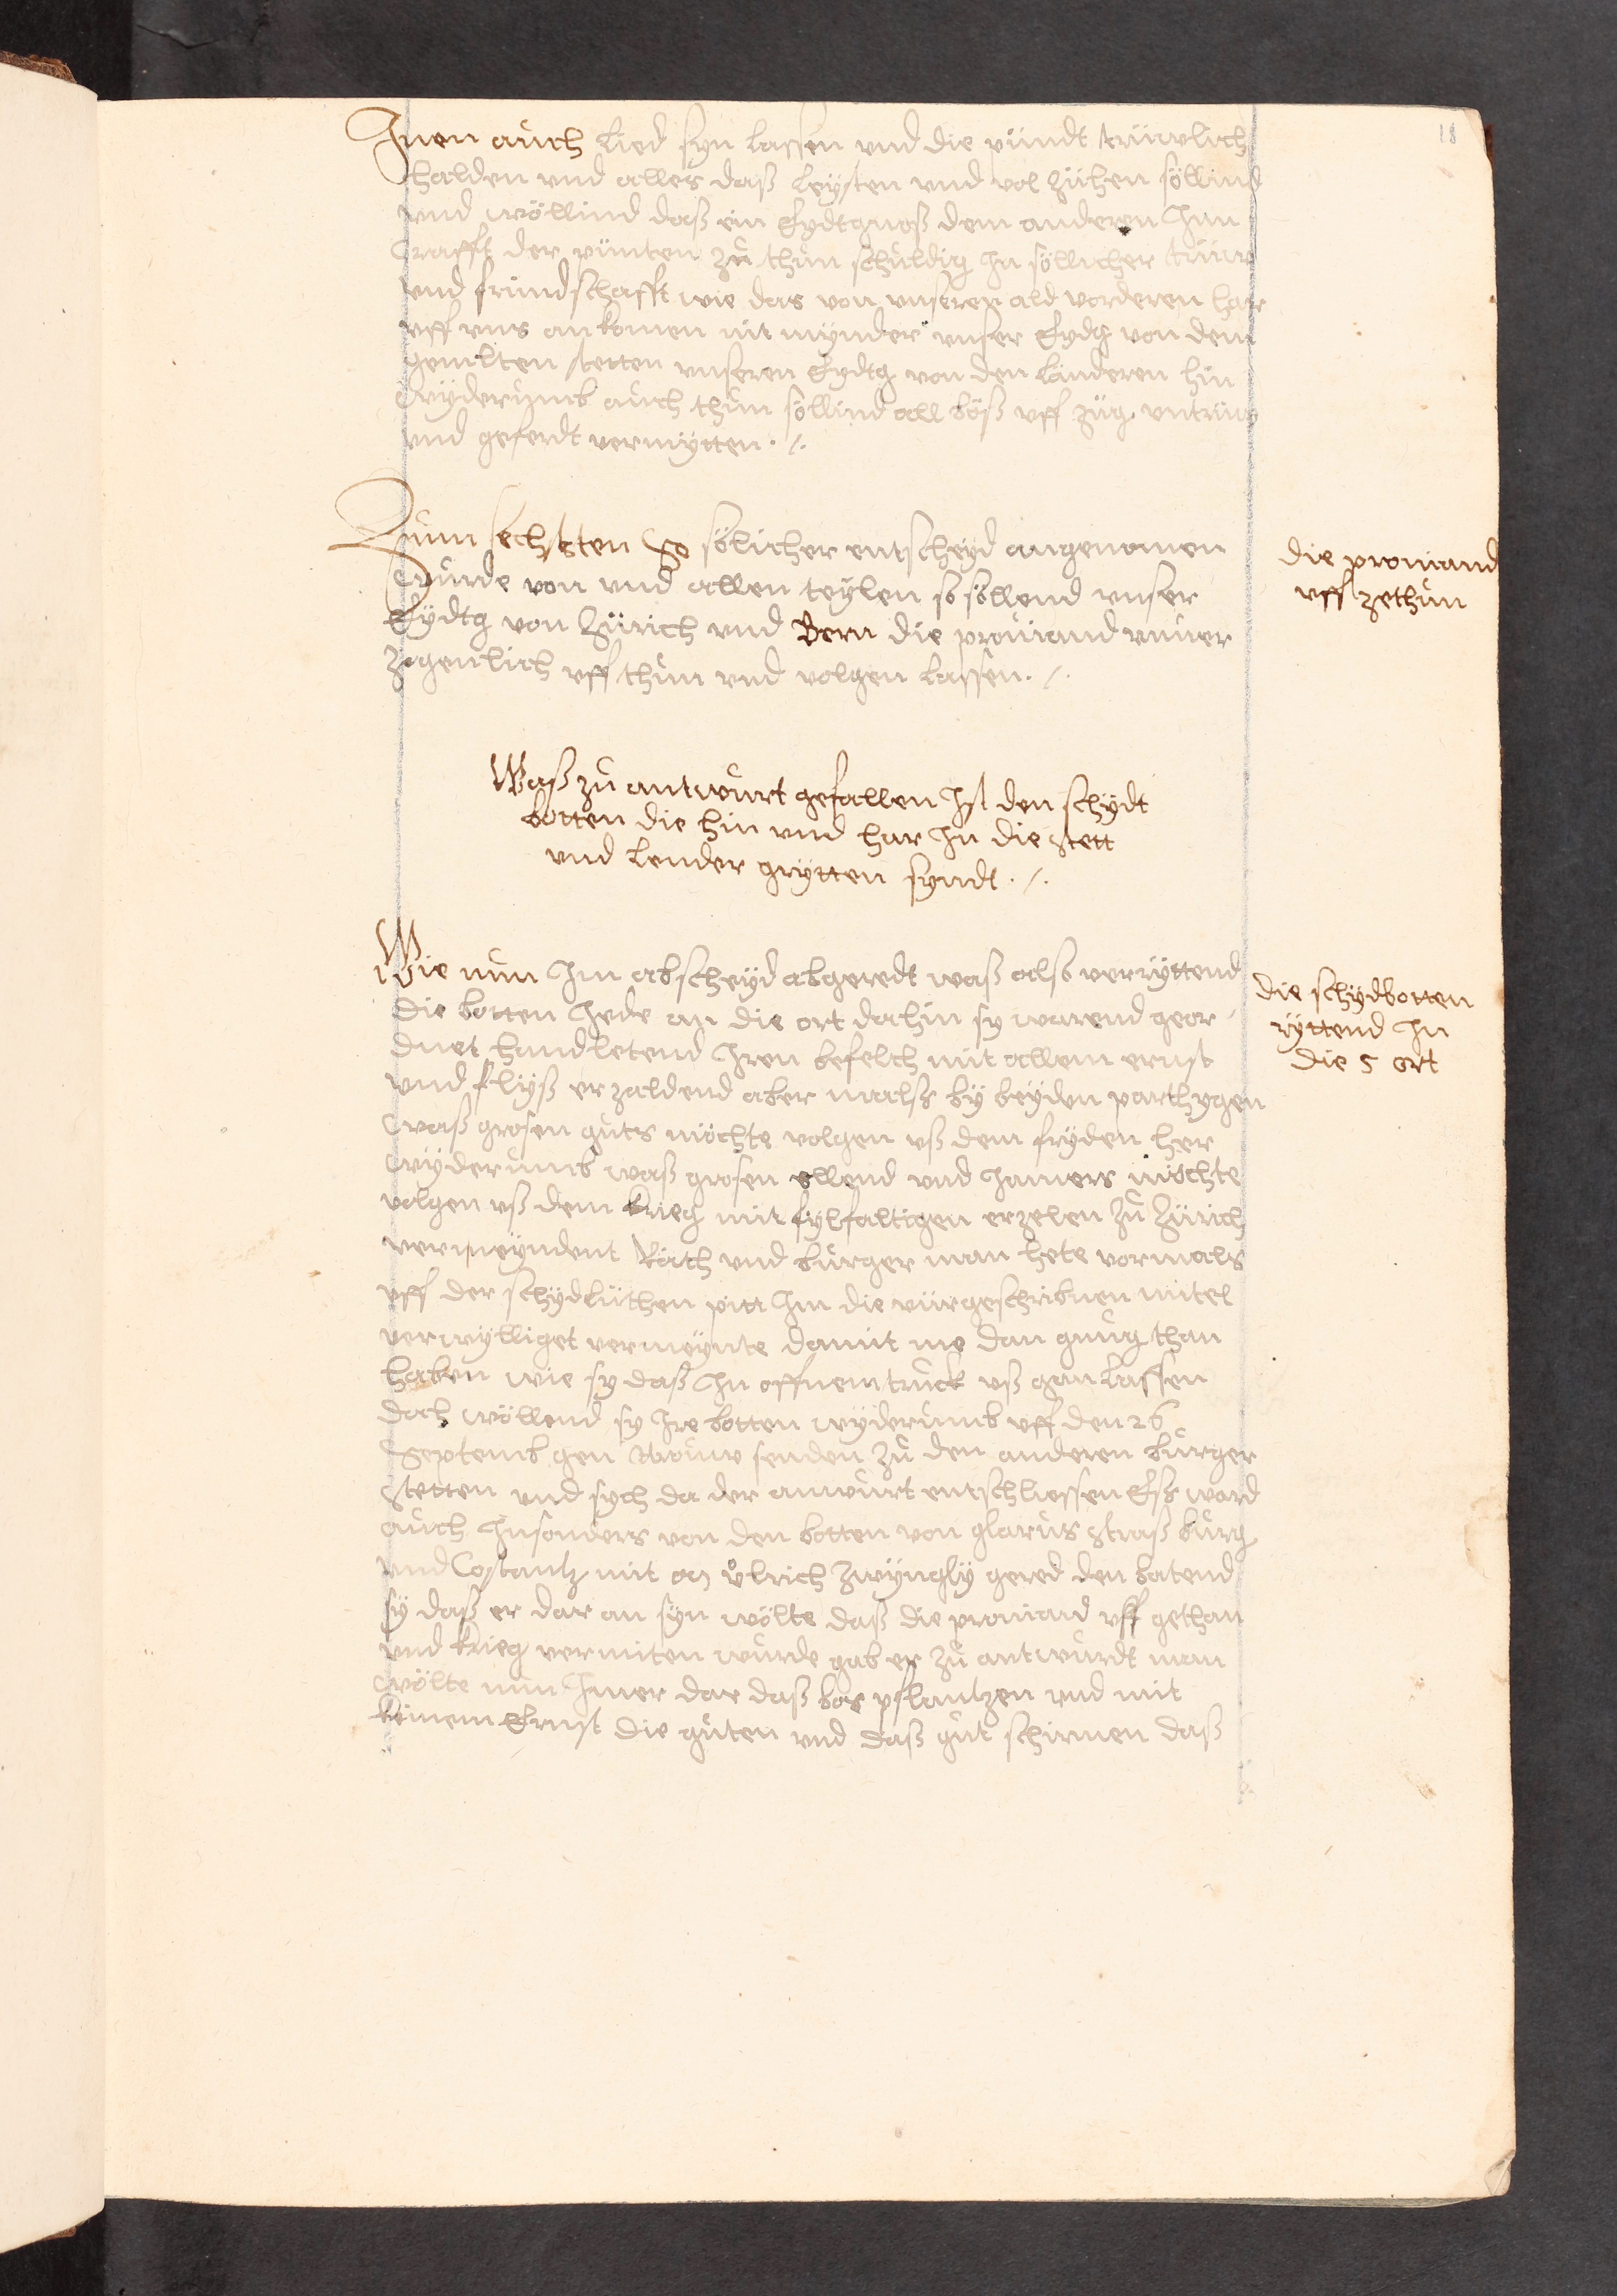 18
Inen auch Lied syn lassen vnd die pündt trüwlich
halden vnd alles daß leysten vnd vol zühen söllind
vnd wöllind daß ein Eydtgnoß dem anderen Inn
Crafft der pünten zů thůn schuldig In söllicher trüw
vnd fründschafft wie das von vnseren alt vorderen har
vff vns an komen nit mynder vnser Eydtg von den
gemelten stetten vnseren Eydtg von den länderen hin
wyderumb auch thůn söllind all böß vff züg vntrüw
vnd geferdt vermytten ./.
Zum sechsten So sölicher entscheyd angenomen
wurde von vnd allen teylen so söllend vnser
Eydtg von Zürich vnd Bern die prouiand vnuer
zogenlich vff thůn vnd volgen lassen ./.
die prouiand
vff zethůn
Waß zů antwurt gefallen Ist den schydt
botten die hin vnd har In die stett
vnd Lender grytten syndt ./.
Wie nun Im abscheyd abgeredt waß also verryttend
die botten Jede an die ort dahin sy warend geor
dnet handletend Iren befelch mit allem ernst
vnd flyß erzaldend aber malß by beyden parthygen
waß grosen gůts möchte volgen vß dem fryden her
wyderumb waß grosen ellend vnd Jamers möchte
volgen vß dem krieg mit fylfaltigen erzelen Zů Zürich
vermeyndent Räth vnd burger man hete vormals
vff der schydlüthen pitt Im die vürgeschribnen mitel
verwylliget vermeynte damit me dan gnůg than
haben wie sy daß In offnem truck vß gan lassen
doch wöllend sy Ire botten wyderumb vff den 26
Septemb gen Arouw senden zů den anderen burger
Stetten vnd sych da der antwurt entschliessen Eß ward
auch Insonders von den botten von glarus straß burg
vnd Costantz mit M Ůlrich Zwyngly gered den batend
sy daß er dar an syn wölte daß die prouiand vff gethan
vnd krieg vermiten wurde gab er zů antwurdt man
wölte nun Jmer dar daß bös pflantzen vnd mit
keinem Ernst die gůten vnd daß gůt schirmen daß
die schydbotten
ryttend In
die 5 ort